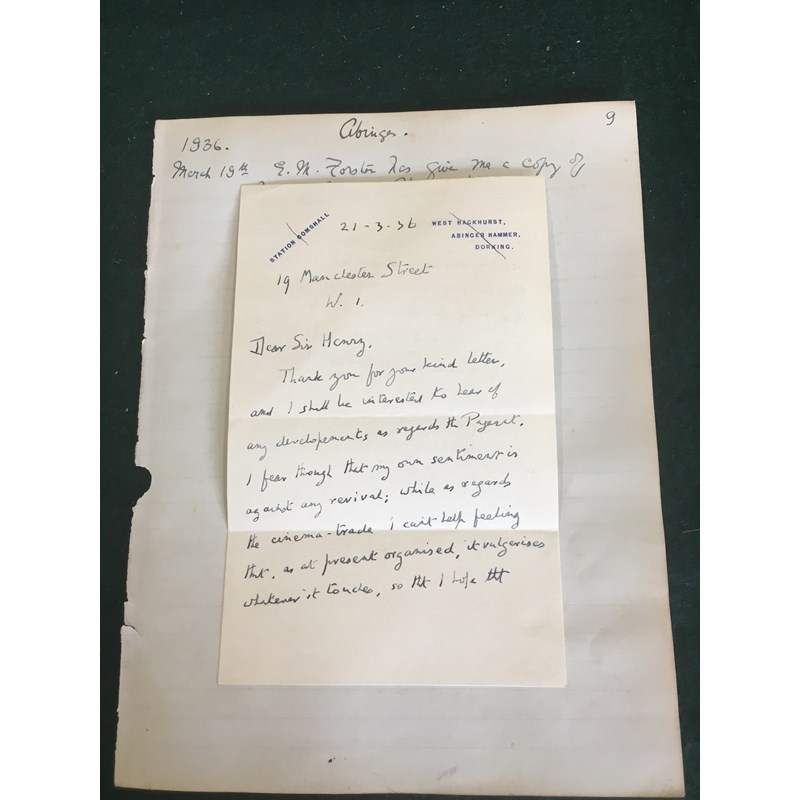 Abinger.
9
1936.
March 19th E. M. Forster has give me a copy of
STATION GOMSHALL
21-3-36
WEST HACKHURST,
ABINGER HAMMER,
DORKING.
19 Manchester Street
W. 1.
Dear Sir Henry,
Thank you for your kind letter,
and I shall be interested to hear of
any developements as regards the Pageant.
I fear though that my own sentiment is
against any revival; while as regards
the cinema-trade I can't help feeling
that, as at present organised, it vulgarises
whatever it touches, so tht I hope tht